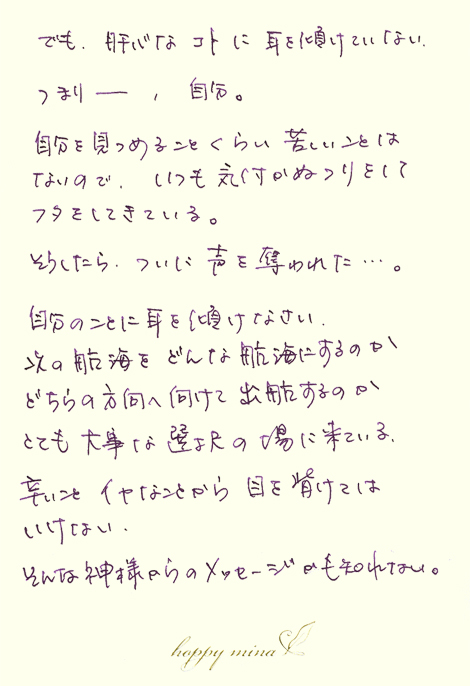 でも、肝心なコトに耳を傾けていない。
つまり一、自分。
自分を見つめることくらい苦しいことは
ないので、いつも気付かぬフリをして
フタをしてきている。
そうしたら、ついに声を奪われた…。
自分のことに耳を傾けなさい。
次の航海をどんな航海にするのか
どちらの方向へ向けて出航するのか
とても大事な選択の場に来ている。
辛いことイヤなことから目を背けては
いけない。
そんな神様からのメッセージかも知れない。
happy mina